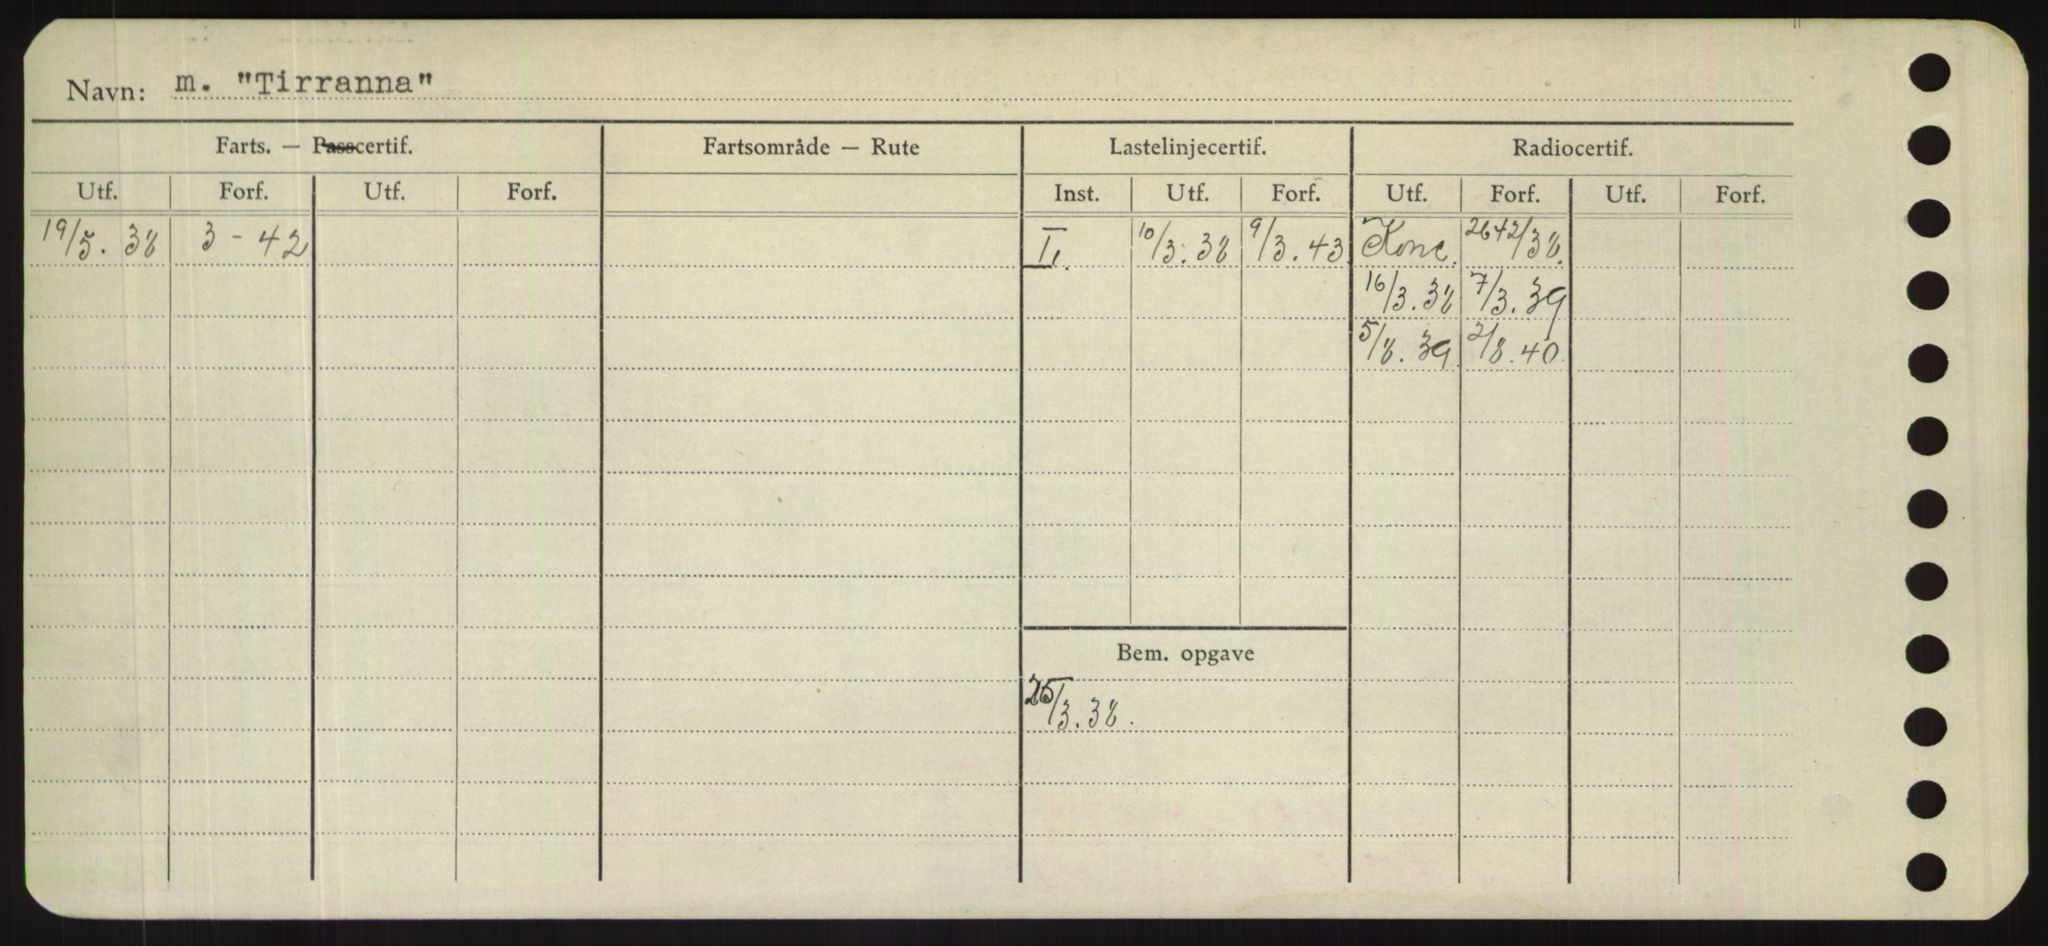 Navn: m. "Tirranna"
Farts. — Passcertif. Fartsområde — Rute Lastelinjecertif. Radiocertif.
Utf. Forf. Utf. Forf. Inst. Utf. Forf. Utf. Forf. Utf. Forf.
19/5. 38 3 - 42 I. 10/3. 38 9/3. 43 Konc. 2642/38.
16/3. 38 7/3. 39
5/8. 39 2/8. 40.
Bem. opgave
25/3. 38.